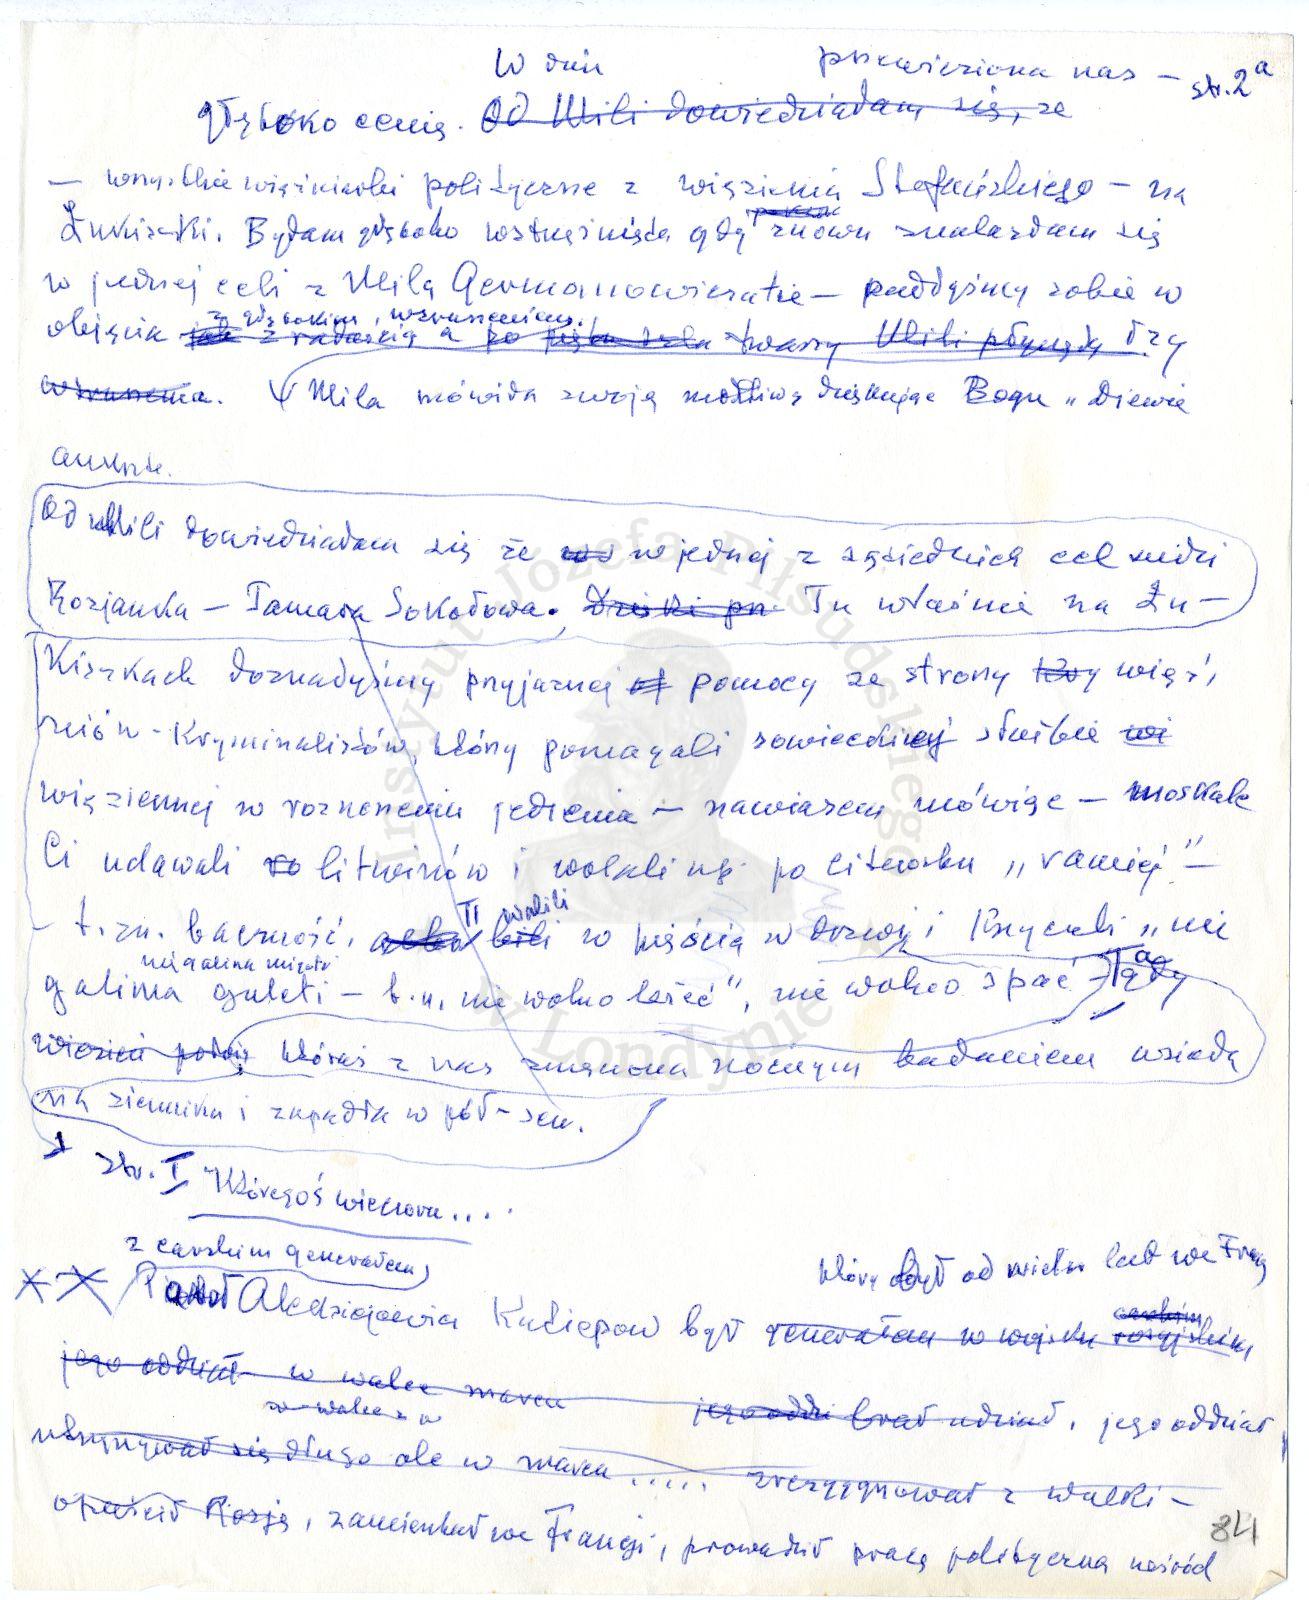 W dniu przewieziona nas — str. 2a
głęboko cenię. Od Mili dowiedziałam się, że
— wszystkie więźniarki polityczne z więzienia Stefańskiego — na
Łukiszki. Byłam głęboko wstrząśnięta gdy znowu znalazłam się
w jednej celi z Milą Germanowiczutie — padłyśmy sobie w
z głębokim wzruszeniem.
objęcia z radością a po twarzy Mili płynęły łzy
wzruszenia. Mila mówiła swoją modlitwę dziękując Bogu „Diewie
Od Mili dowiedziałam się że w jednej z sąsiednich cel siedzi
Rosjanka — Tamara Sokołowa. Tu właśnie na Łu-
kiszkach doznałyśmy przyjaznej pomocy ze strony więź-
niów-kryminalistów, którzy pomagali sowieckiej służbie
więziennej w roznoszeniu jedzenia — nawiasem mówiąc — moskale
Ci udawali litwinów i wołali np. po litewsku „ramiej" —
— t.zn. baczność, II walili w pięścią w drzwi i krzyczeli „nie
negalima miegoti
galima guleti — t.zn. nie wolno leżeć", nie wolno spać gdy
któraś z nas zmęczona nocnym badaniem usiadła
na sienniku i zapadła w pół-sen.
str. I "Któregoś wieczoru....
z carskim generałem,
który był od wielu lat we Francji
XX Aleksiejewicz Kutiepow był generałem w wojsku rosyjskim
jego oddział w walce marcu brał udział, jego oddział
w walce z
utrzymywał się długo ale w marcu ..... zrezygnował z walki —
opuścił Rosję, zamieszkał we Francji, prowadził pracę polityczną wśród
84
Instytut Józefa Piłsudskiego
w Londynie